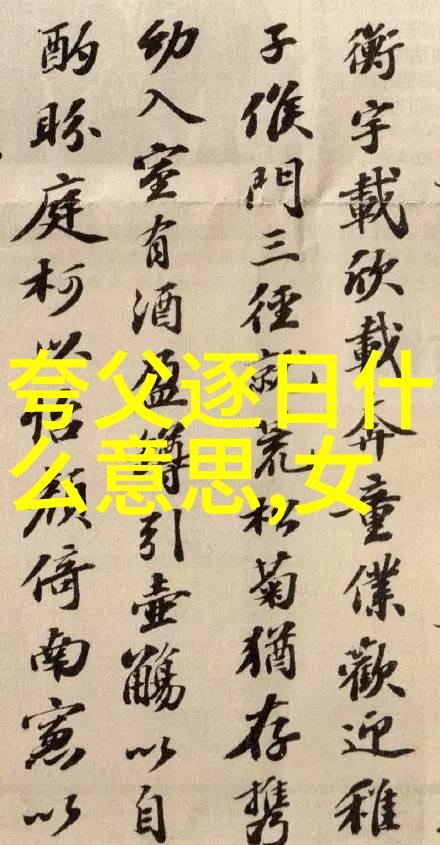 夸父逐日什
么意思,女
衡宇載欣載奔童僕歡迎稚
子候門三徑就荒松菊猶存携
幼入室有酒盈罇引壺觴以自
酌眄庭柯以怡顔倚南窓以